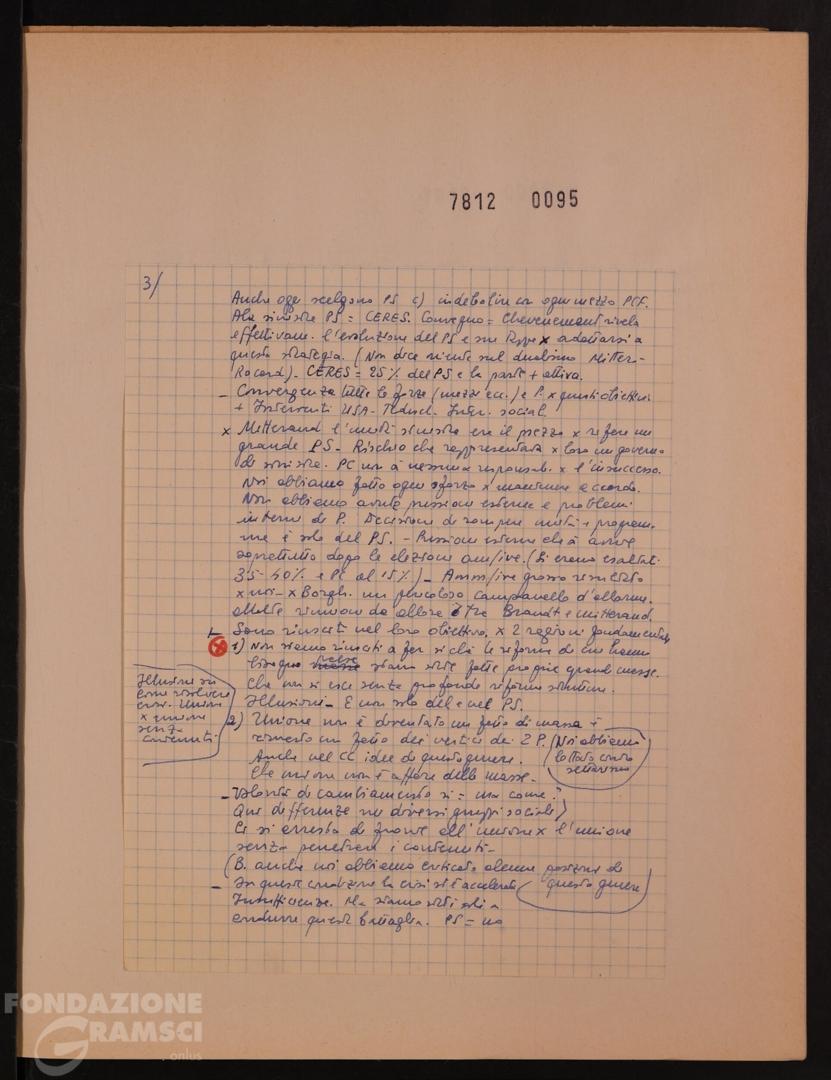 7812 0095
3/
Anche oggi scelgono PS c) indebolire con ogni mezzo PCF.
Alla sinistra PS = CERES. Convegno = Chevenement rivela
effettivam. l'evoluzione del PS e suo x adattarsi a
questa strategia. (Non dice niente sul dualismo Mitter-
Rocard) - CERES = 25% del PS e la parte + attiva.
- Convergenza tutte le forze (mezzi ecc.) e P. x questi obiettivi
+ Interventi USA - Tedesch. Inter. social.
x Mitterand l'unità sinistra era il prezzo x rifare un
grande PS - Rischio che rappresentava x loro un governo
di sinistra. PC non à nessuna responsab. x l'insuccesso.
Noi abbiamo fatto ogni sforzo x mantenere accordo.
Non abbiamo avuto pressioni esterne e problemi
interni di P. Decisione di rompere unità + program-
ma è solo del PS. - Pressioni esterne che à avuto
soprattutto dopo le elezioni am/ive. (Si erano esaltati
35-40% e PC al 15%) - Amm/ive grosso risultato
x noi - x Borgh. un pericoloso campanello d'allarme.
Molte riunioni da allora tra Brandt e Mitterand.
- Sono riusciti nel loro obiettivo, x 2 ragioni fondamentali
1) Non siamo riusciti a far sì che le riforme di cui hanno
bisogno siano state fatte proprie grandi masse.
Che non si esce senza profonde riforme struttur.
Illusioni - E non solo del e nel PS.
Illusione su
come risolvere
crisi. Unione
x unione
senza
contenuti
2) Unione non è diventato un fatto di massa +
rimasto un fatto dei vertici dei 2 P. (Noi abbiamo
lottato contro
settarismo
Anche nel CC idee di questo genere.
Che unione non è affare delle masse -
- Volontà di cambiamento sì = ma come?
Qui differenze nei diversi gruppi sociali)
Ci si arresta di fronte all'unione x l'unione
senza penetrare i contenuti -
(B. anche noi abbiamo criticato alcune posizioni di
questo genere
- In queste condizioni la crisi si è accelerata
Insufficienze. Ma siamo stati soli a
condurre questa battaglia. PS = no
FONDAZIONE
GRAMSCI
onlus